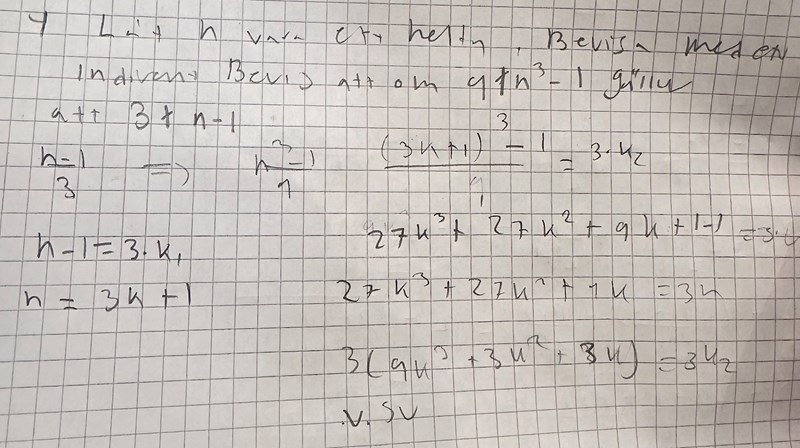 4 Låt n vara ett heltal, Bevisa med en
Indirekt Bevis att om 9∤n³-1 gäller
att 3∤n-1
n-1/3 ⇒ n³-1/9
(3k+1)³-1/9 = 3·k₂
n-1=3·k₁
n = 3k+1
27k³+27k²+9k+1-1 =3·k
27k³+27k²+9k =3k
3(9k³+3k²+3k) =3k₂
V.SV